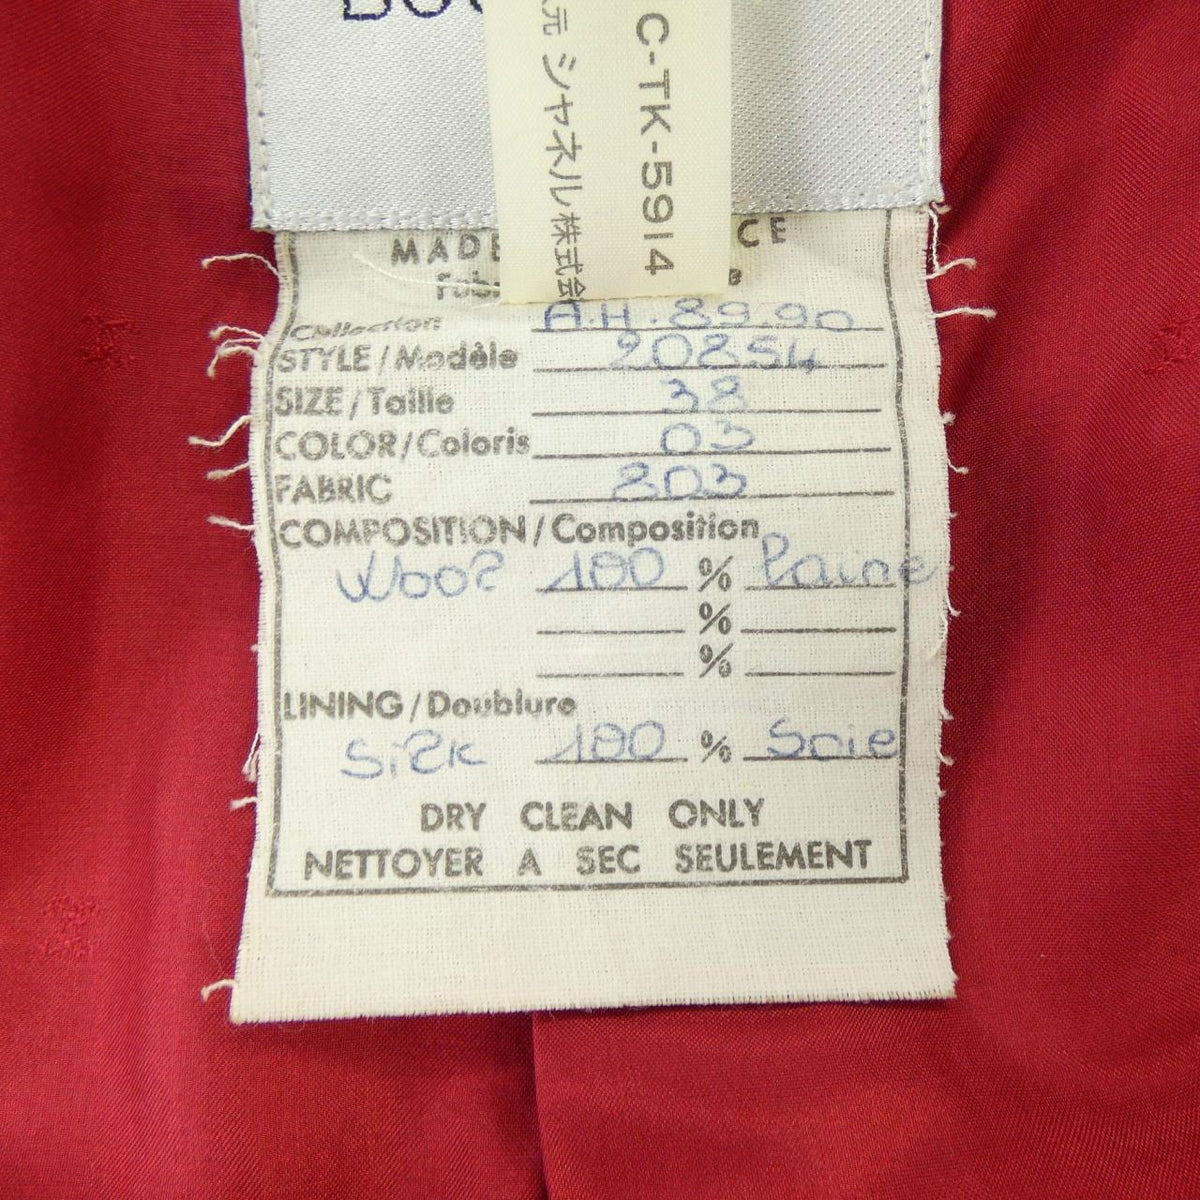 C-TK-5914
元 シャネル株式会
MADE CE
Fabr
Collection A.H. 89.90
STYLE/Modèle 20854
SIZE/Taille 38
COLOR/Coloris 03
FABRIC 803
COMPOSITION/Composition
Wool 100 % Laine
%
%
LINING/Doublure
Silk 100 % Soie
DRY CLEAN ONLY
NETTOYER A SEC SEULEMENT